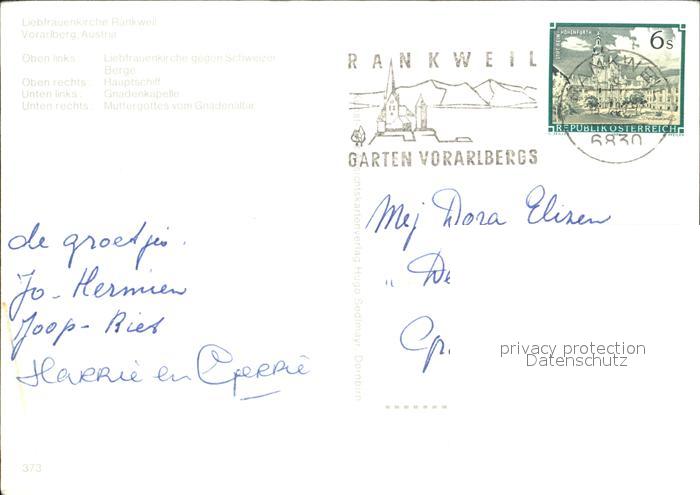 Liebfrauenkirche Rankweil
Vorarlberg, Austria
Oben links: Liebfrauenkirche gegen Schweizer
Berge
Oben rechts: Hauptschiff
Unten links: Gnadenkapelle
Unten rechts: Muttergottes vom Gnadenaltar
RANKWEIL
GARTEN VORARLBERGS
6s
REPUBLIK ÖSTERREICH
6830
de groetjes.
Jo - Hermien
Joop - Ries
Harrie en Gerrie
Mej Dora Elizen
" De
Gr.
privacy protection
Datenschutz
373